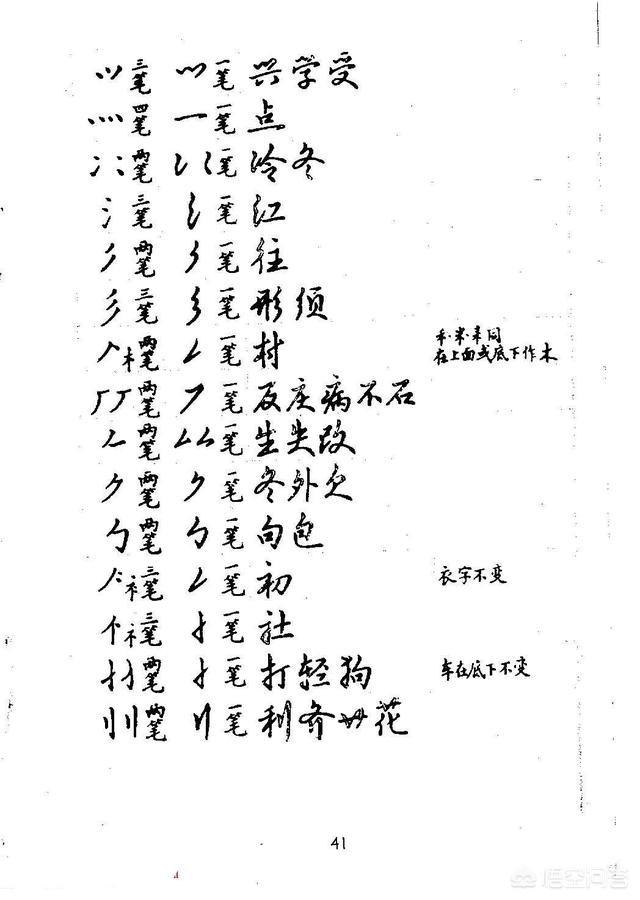 三笔 一笔 兴学受
灬 四笔 一 一笔 点
冫 两笔 一笔 冷冬
氵 三笔 一笔 江
彡 两笔 一笔 往
彡 三笔 一笔 形须
木 两笔 一笔 村 禾·米·耒同
在上面或底下作木
厂 两笔 一笔 反庄病不石
𠂉 两笔 一笔 生失改
ク 两笔 ク 一笔 冬外久
勹 两笔 勹 一笔 句包
衤 三笔 一笔 初 衣字不变
礻 三笔 一笔 社
扌 两笔 一笔 打轻狗 车在底下不变
刂 两笔 刂 一笔 利齐艹花
41
悟空问答